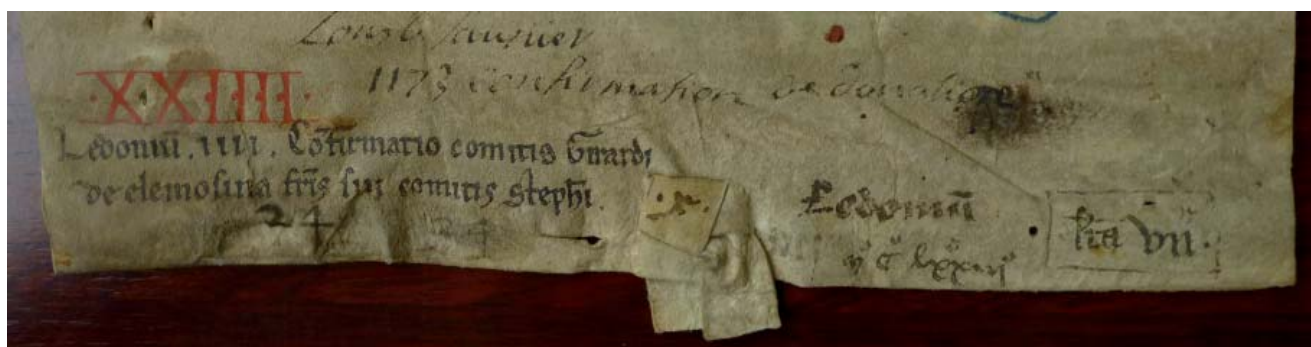 Lons le Saunier
1173 confirmation de donation
XXIIII
Ledonuū. IIII. Cōfirmatio comitis Girardi
de elemosina fr̄is sui comitis Steph̄i.
24 24
Ledonuū
lr̄a VII.